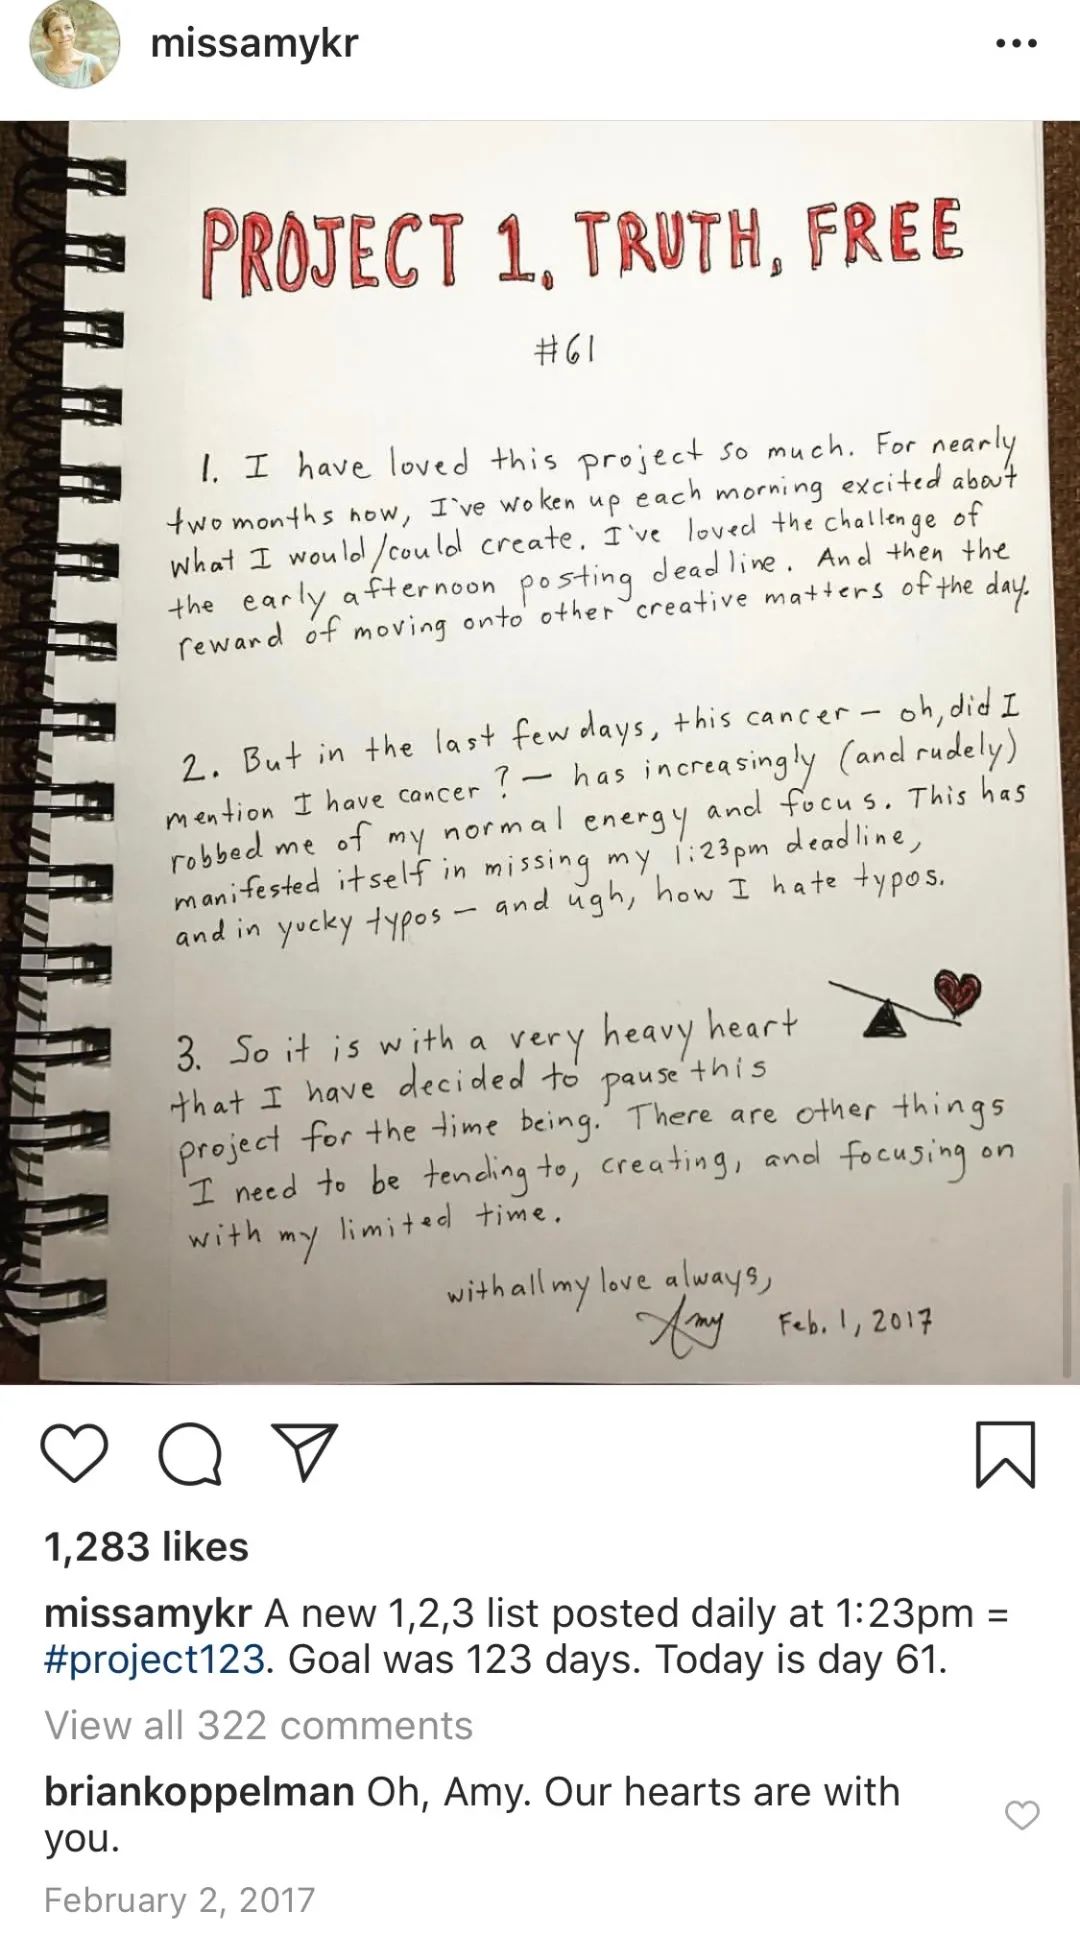 missamykr
PROJECT 1, TRUTH, FREE
#61
1. I have loved this project so much. For nearly
two months now, I've woken up each morning excited about
what I would/could create. I've loved the challenge of
the early afternoon posting deadline. And then the
reward of moving onto other creative matters of the day.
2. But in the last few days, this cancer – oh, did I
mention I have cancer? – has increasingly (and rudely)
robbed me of my normal energy and focus. This has
manifested itself in missing my 1:23pm deadline,
and in yucky typos – and ugh, how I hate typos.
3. So it is with a very heavy heart
that I have decided to pause this
project for the time being. There are other things
I need to be tending to, creating, and focusing on
with my limited time.
with all my love always,
Amy Feb. 1, 2017
1,283 likes
missamykr A new 1,2,3 list posted daily at 1:23pm =
#project123. Goal was 123 days. Today is day 61.
View all 322 comments
briankoppelman Oh, Amy. Our hearts are with
you.
February 2, 2017